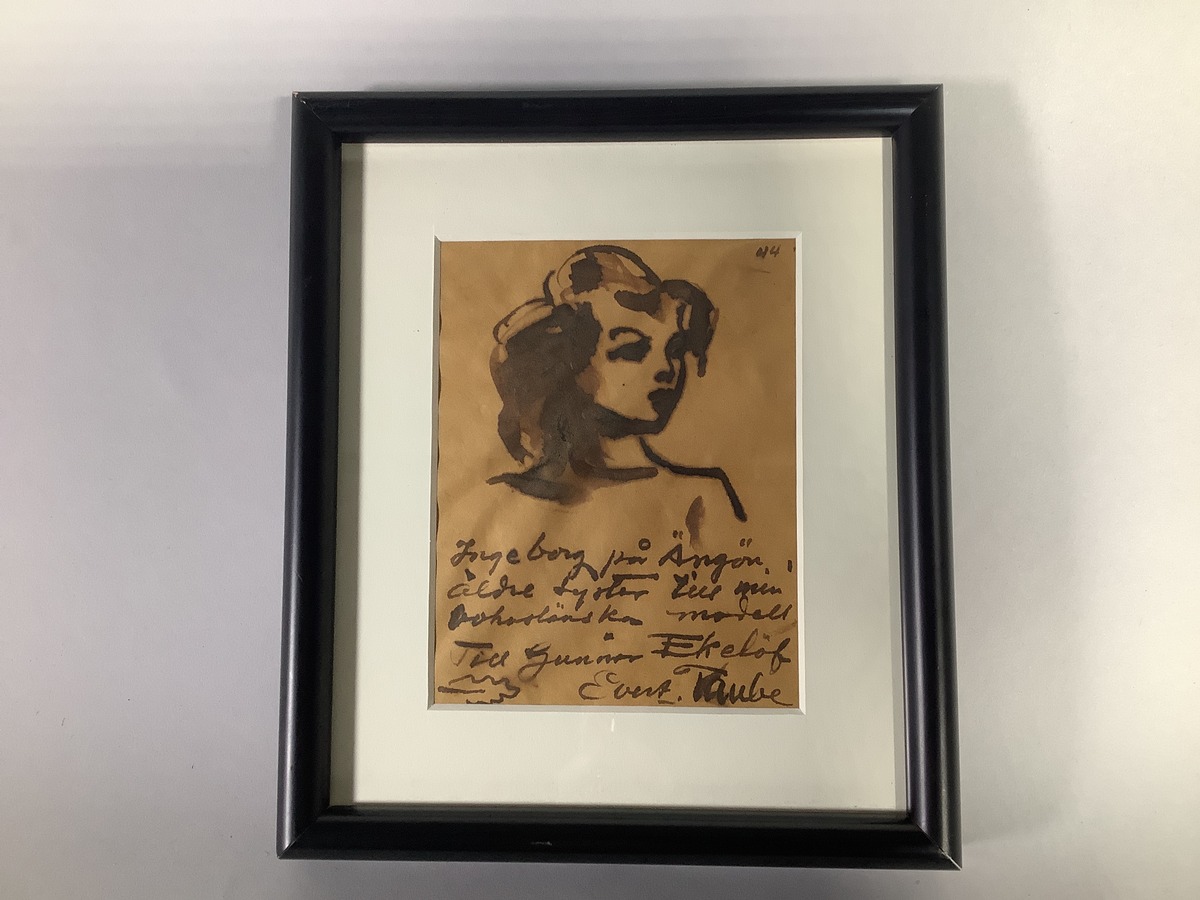 44
Ingeborg på Ängön,
äldre syster till min
bohuslänska modell
Till Gunnar Ekelöf
Evert Taube